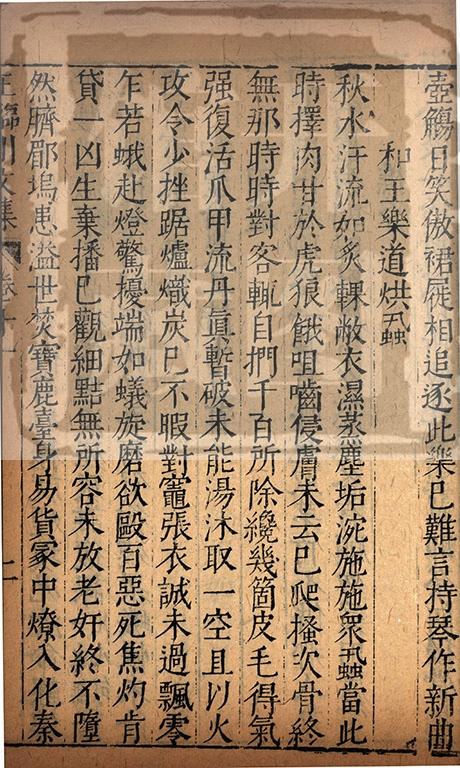 壺觴日笑傲裙屐相追逐此樂已難言持琴作新曲
和王樂道烘虱
秋水汗流如炙輠敝衣濕蒸塵垢涴施施衆虱當此
時擇肉甘於虎狼餓咀嚙侵膚未云已爬搔次骨終
無那時時對客輒自捫千百所除纔幾箇皮毛得氣
强復活爪甲流丹眞暫破未能湯沐取一空且以火
攻令少挫踞爐熾炭已不暇對竈張衣誠未過飄零
乍若蛾赴燈驚擾端如蟻旋磨欲毆百惡死焦灼肯
貸一凶生棄播已觀細黠無所容未放老奸終不墮
然臍郿塢患溢世焚寶鹿臺身易貨冢中燎入化秦
王臨川文集 卷十一